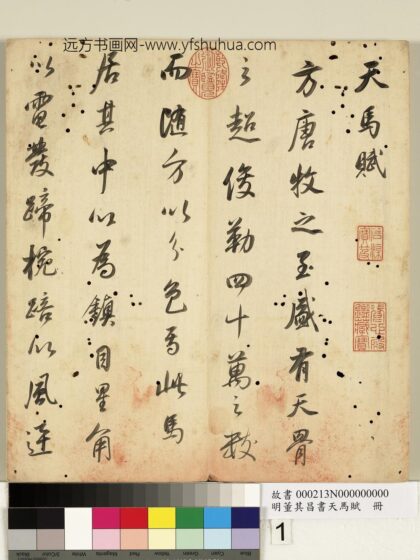 远方书画网-www.yfshuhua.com
天馬賦
方唐牧之至盛有天骨
之超俊勒四十萬之數
而随方以分色焉此馬
居其中以為鎮目星角
以電發蹄椀踣以風迋
故書 000213N000000000
明董其昌書天馬賦 冊
1